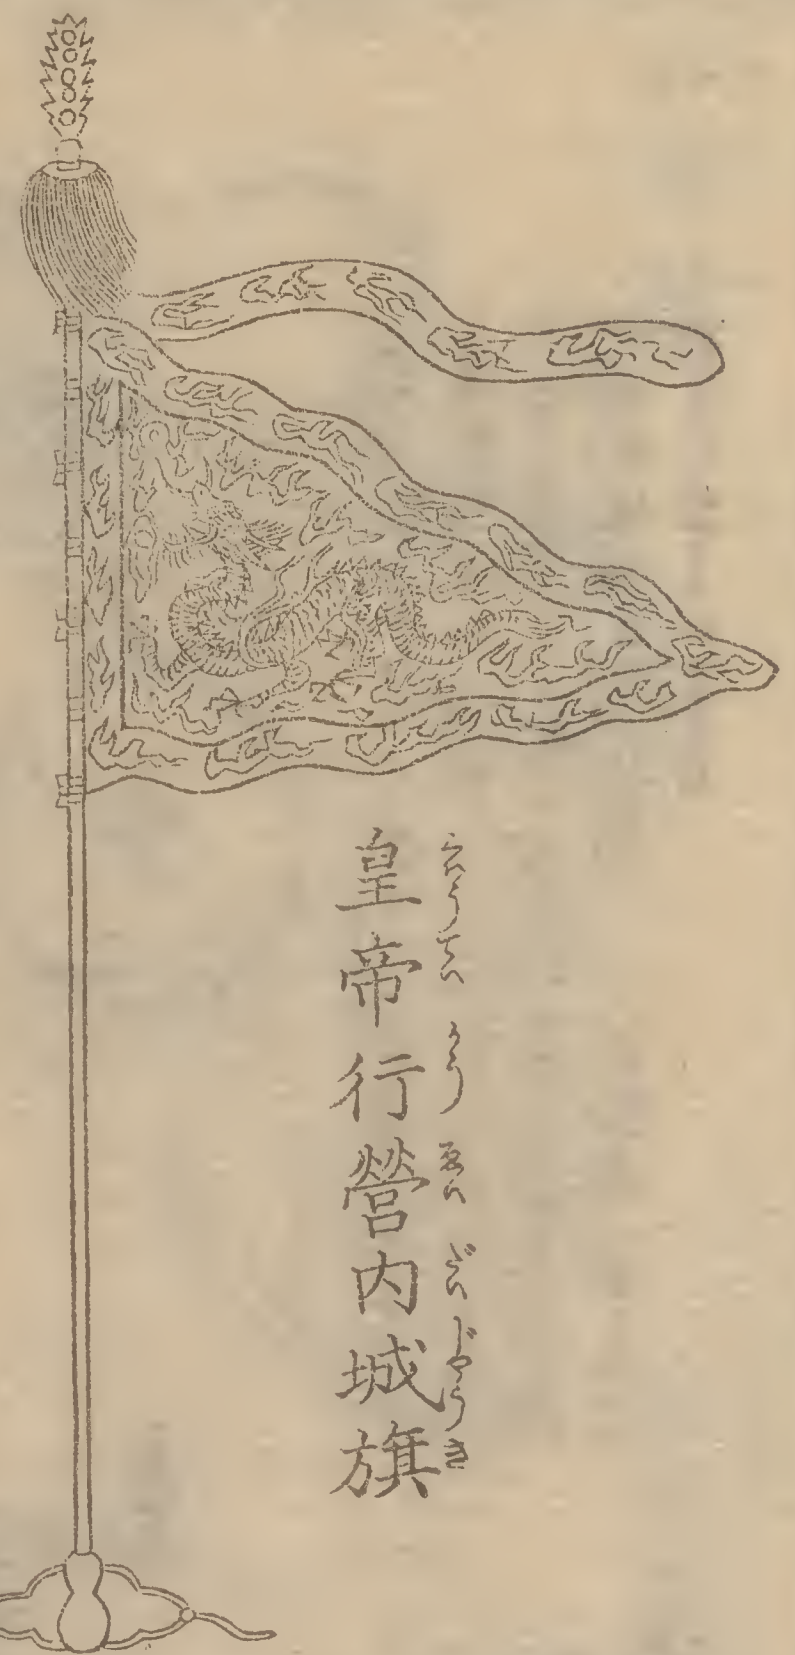 皇帝行營内城旗
くわうてい かう ゑい だい じやう き